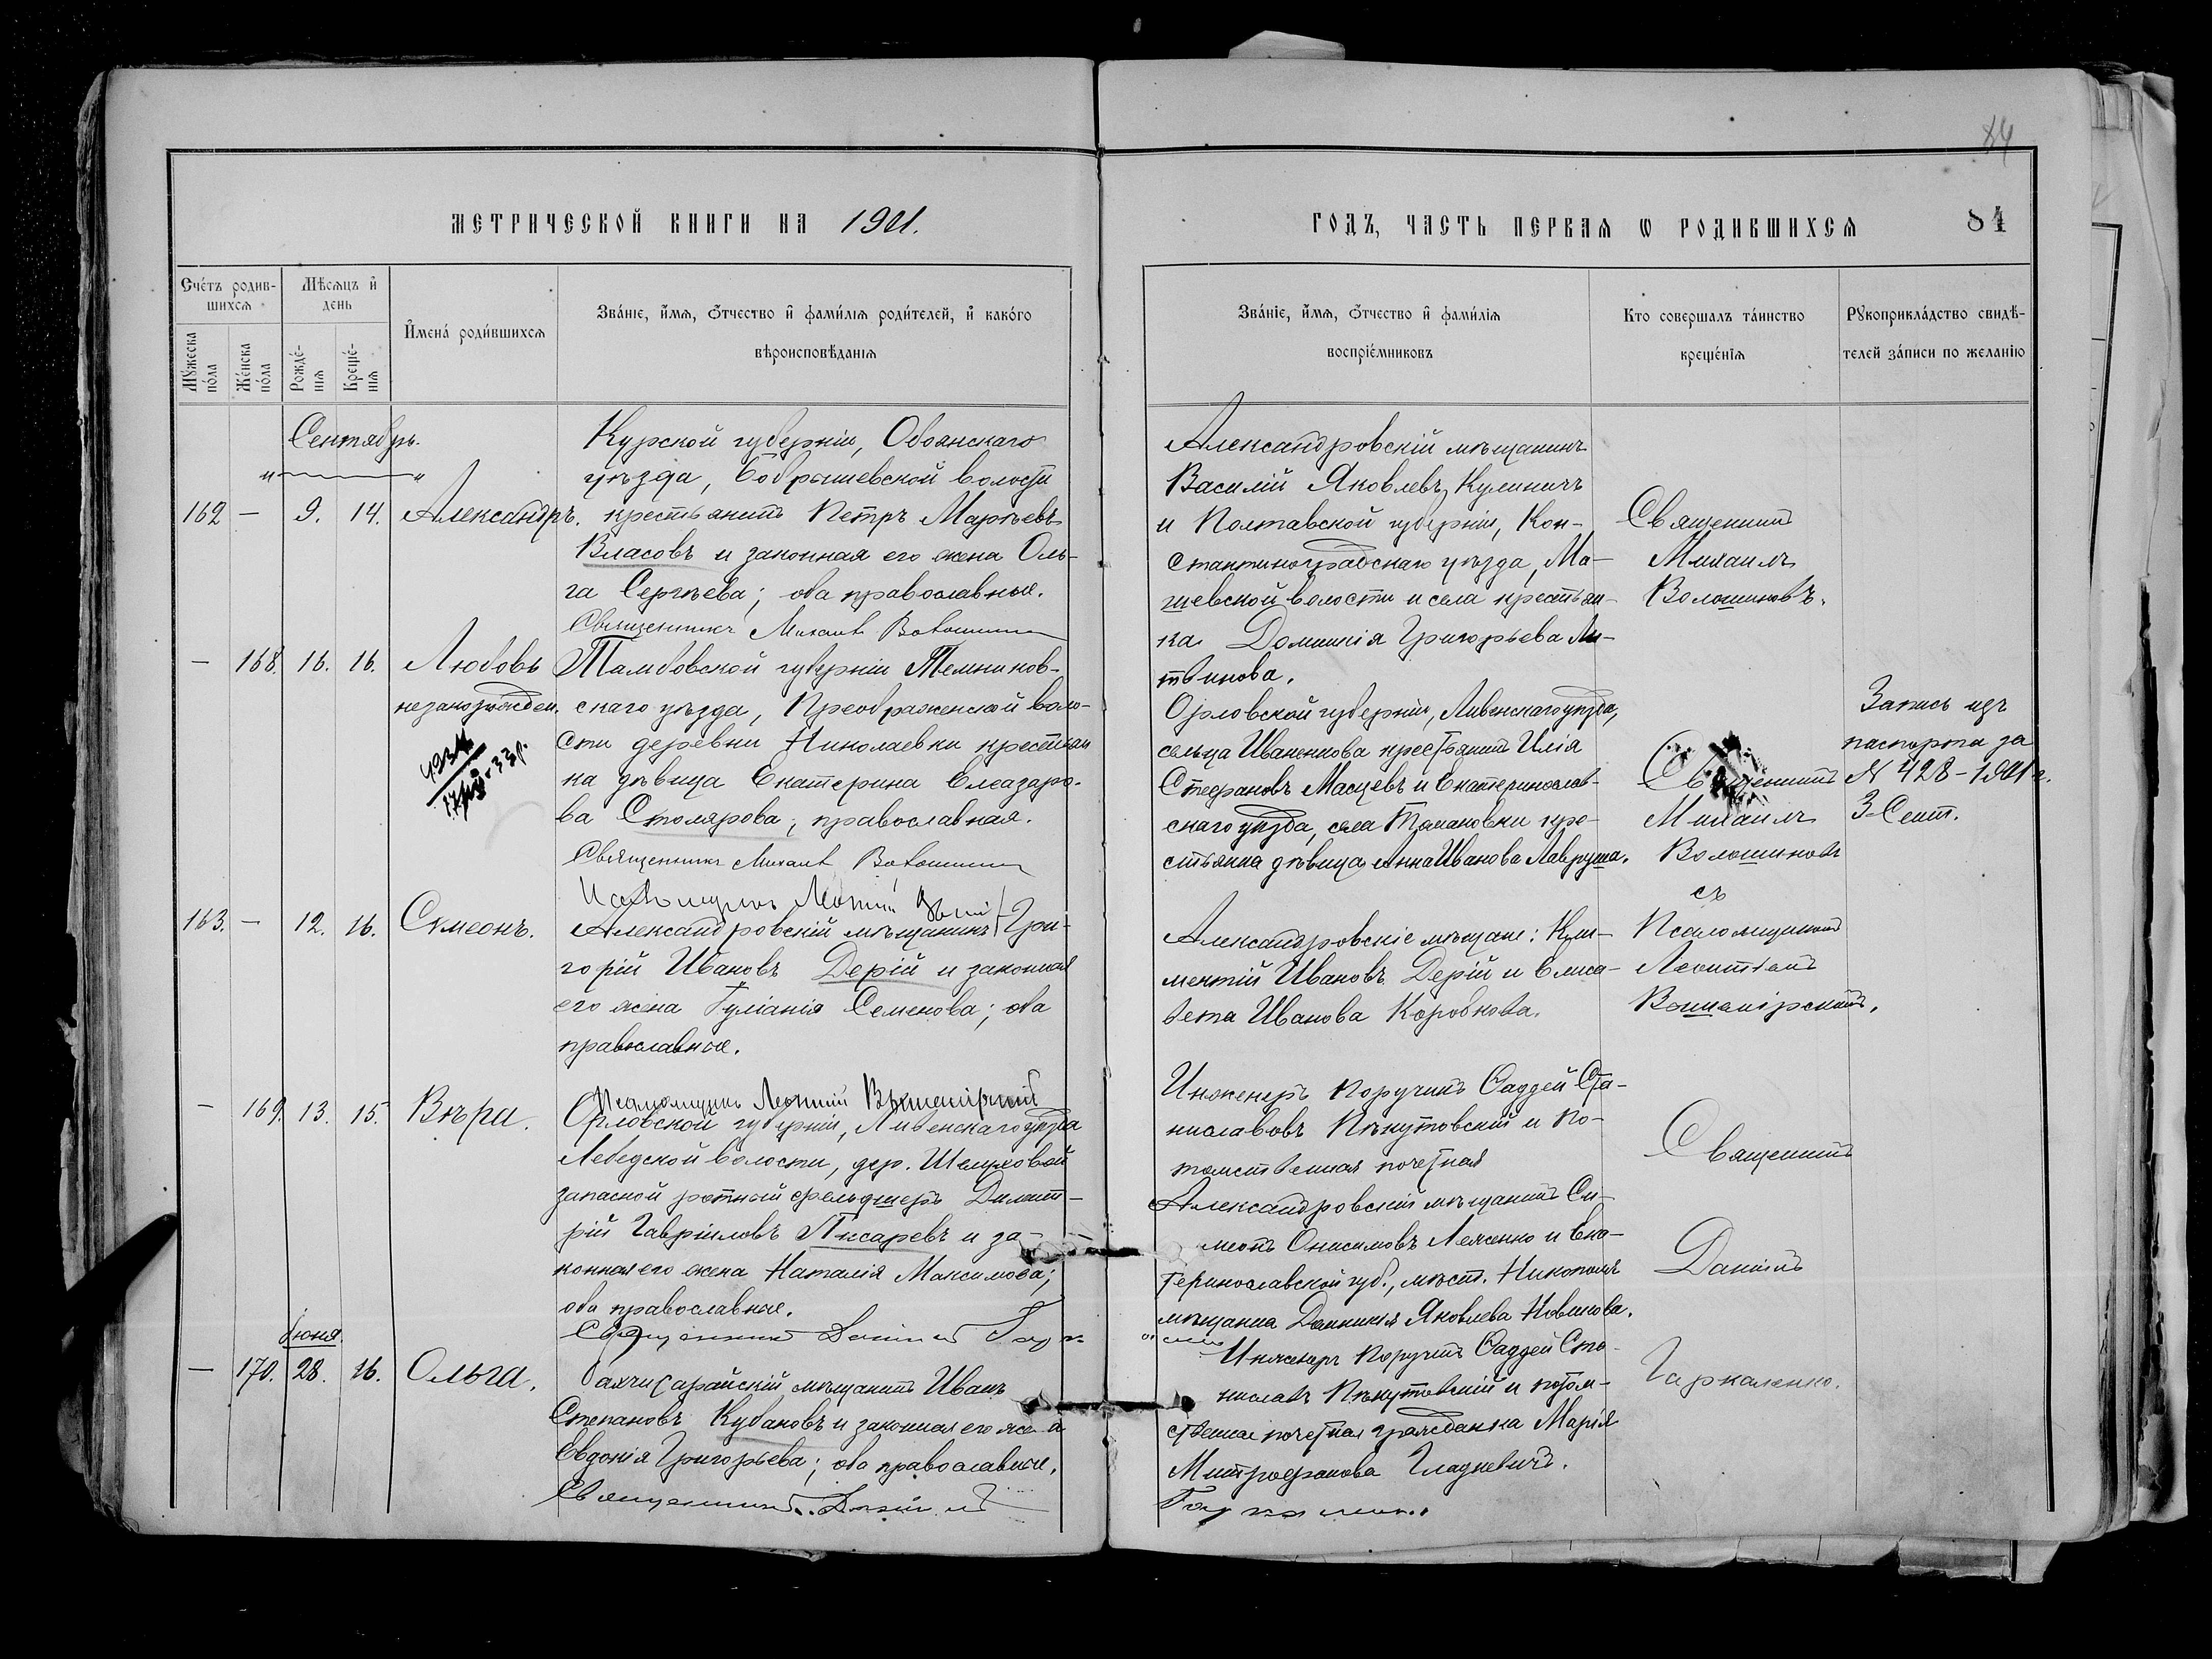 84
МЕТРИЧЕСКОЙ КНИГИ НА 1901.
ГОДЪ, ЧАСТЬ ПЕРВАЯ Ѡ РОДИВШИХСЯ
84
Счетъ родив-
шихся
Мѣсяцъ и
день
Мужеска
пола
Женска
пола
Рожде-
нія
Креще-
нія
Имена родившихся
Званіе, имя, отчество и фамилія родителей, и какого
вѣроисповѣданія
Званіе, имя, отчество и фамилія
воспріемниковъ
Кто совершалъ таинство
крещенія
Рукоприкладство свидѣ-
телей записи по желанію
Сентябрь.
162 — 9. 14. Александръ.
Курской губерніи, Обоянскаго
уѣзда, Бобрышевской волости
крестьянинъ Петръ
Власовъ и законная его жена Оль-
га Сергѣева; оба православные.
Священникъ Михаилъ Волошиновъ
Александровскій мѣщанинъ
Василій Яковлевъ Кулиничъ
и Полтавской губерніи, Кон-
стантиноградскаго уѣзда, Ма-
шевской волости и села крестьян-
ка Домникія Григорьева Ли-
твинова.
Священникъ
Михаилъ
Волошиновъ.
— 168. 16. 16. Любовь
незаконорожден.
Тамбовской губерніи Темников-
скаго уѣзда, Преображенской воло-
сти деревни Николаевки крестьян
ка дѣвица Екатерина Елеазаро-
ва Столярова; православная.
Священникъ Михаилъ Волошиновъ
Орловской губерніи, Ливенскаго уѣзда,
сельца Иваненкова крестьянинъ Илія
Стефановъ Масцевъ и Екатеринослав-
скаго уѣзда, села Томаковки кре-
стьянка дѣвица Анна Иванова Лавруша.
Священникъ
Михаилъ
Волошиновъ
съ
Псаломщикомъ
Запись изъ
паспорта за
N 428-1901 г.
3 Сент.
163. — 12. 16. Сѵмеонъ.
Псаломщикъ
Александровскій мѣщанинъ Гри-
горій Ивановъ Дерій и законная
его жена Іуліанія Семенова; оба
православные.
Псаломщикъ
Александровскіе мѣщане: Кли-
ментій Ивановъ Дерій и Елиса-
вета Иванова Коробкова.
— 169. 13. 15. Вѣра.
Орловской губерніи, Ливенскаго уѣзда
Лебедской волости, дер. Шелуховой
запасной ротный фельдшеръ Димит-
рій Гавріиловъ Писаревъ и за-
конная его жена Наталія Максимова;
оба православные.
Священникъ Даніилъ
Инженеръ Поручикъ Ѳаддей Ста-
ниславовъ и По-
томственная почетная
Александровскій мѣщанинъ Си-
меонъ Онисимовъ Леженко и Ека-
теринославской губ., мѣст. Никополя
мѣщанка Домникія Яковлева Новикова.
Священникъ
Даніилъ
Гаркаленко.
Іюня.
— 170. 28. 16. Ольга.
Бахчисарайскій мѣщанинъ Иванъ
Степановъ Кубаковъ и законная его жена
Евдокія Григорьева; оба православные.
Священникъ Даніилъ
Инженеръ Поручикъ Ѳаддей Ста-
ниславъ и потом-
ственная почетная гражданка Марія
Митрофанова Гладкевичъ.